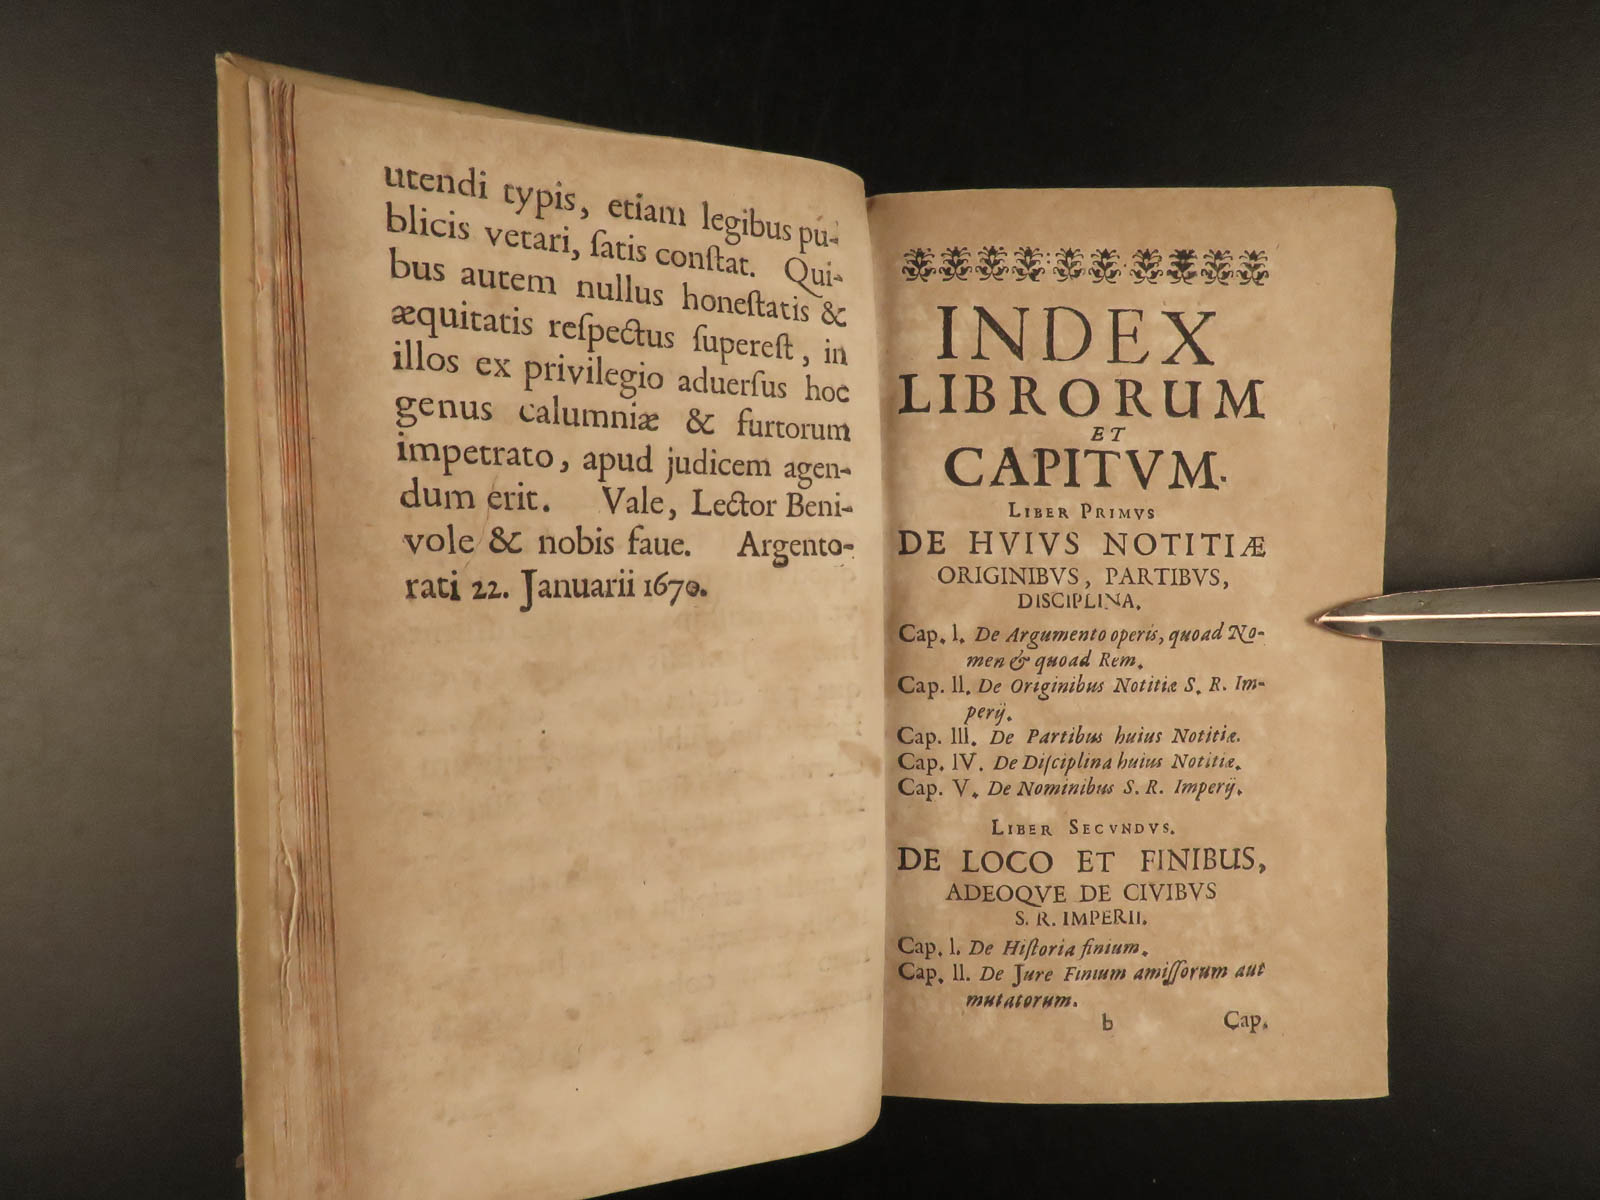 utendi typis, etiam legibus pu-
blicis vetari, ſatis conſtat. Qui-
bus autem nullus honeſtatis &
æquitatis reſpectus ſupereſt, in
illos ex privilegio aduerſus hoc
genus calumniæ & furtorum
impetrato, apud judicem agen-
dum erit. Vale, Lector Beni-
vole & nobis faue. Argento-
rati 22. Januarii 1670.
INDEX
LIBRORUM
ET
CAPITVM.
LIBER PRIMVS
DE HVIVS NOTITIÆ
ORIGINIBVS, PARTIBVS,
DISCIPLINA.
Cap. I. De Argumento operis, quoad No-
men & quoad Rem.
Cap. II. De Originibus Notitiæ S. R. Im-
perij.
Cap. III. De Partibus huius Notitiæ.
Cap. IV. De Diſciplina huius Notitiæ.
Cap. V. De Nominibus S. R. Imperij.
LIBER SECVNDVS.
DE LOCO ET FINIBUS,
ADEOQVE DE CIVIBVS
S. R. IMPERII.
Cap. I. De Hiſtoria finium.
Cap. II. De Jure Finium amiſſorum aut
mutatorum.
b Cap.